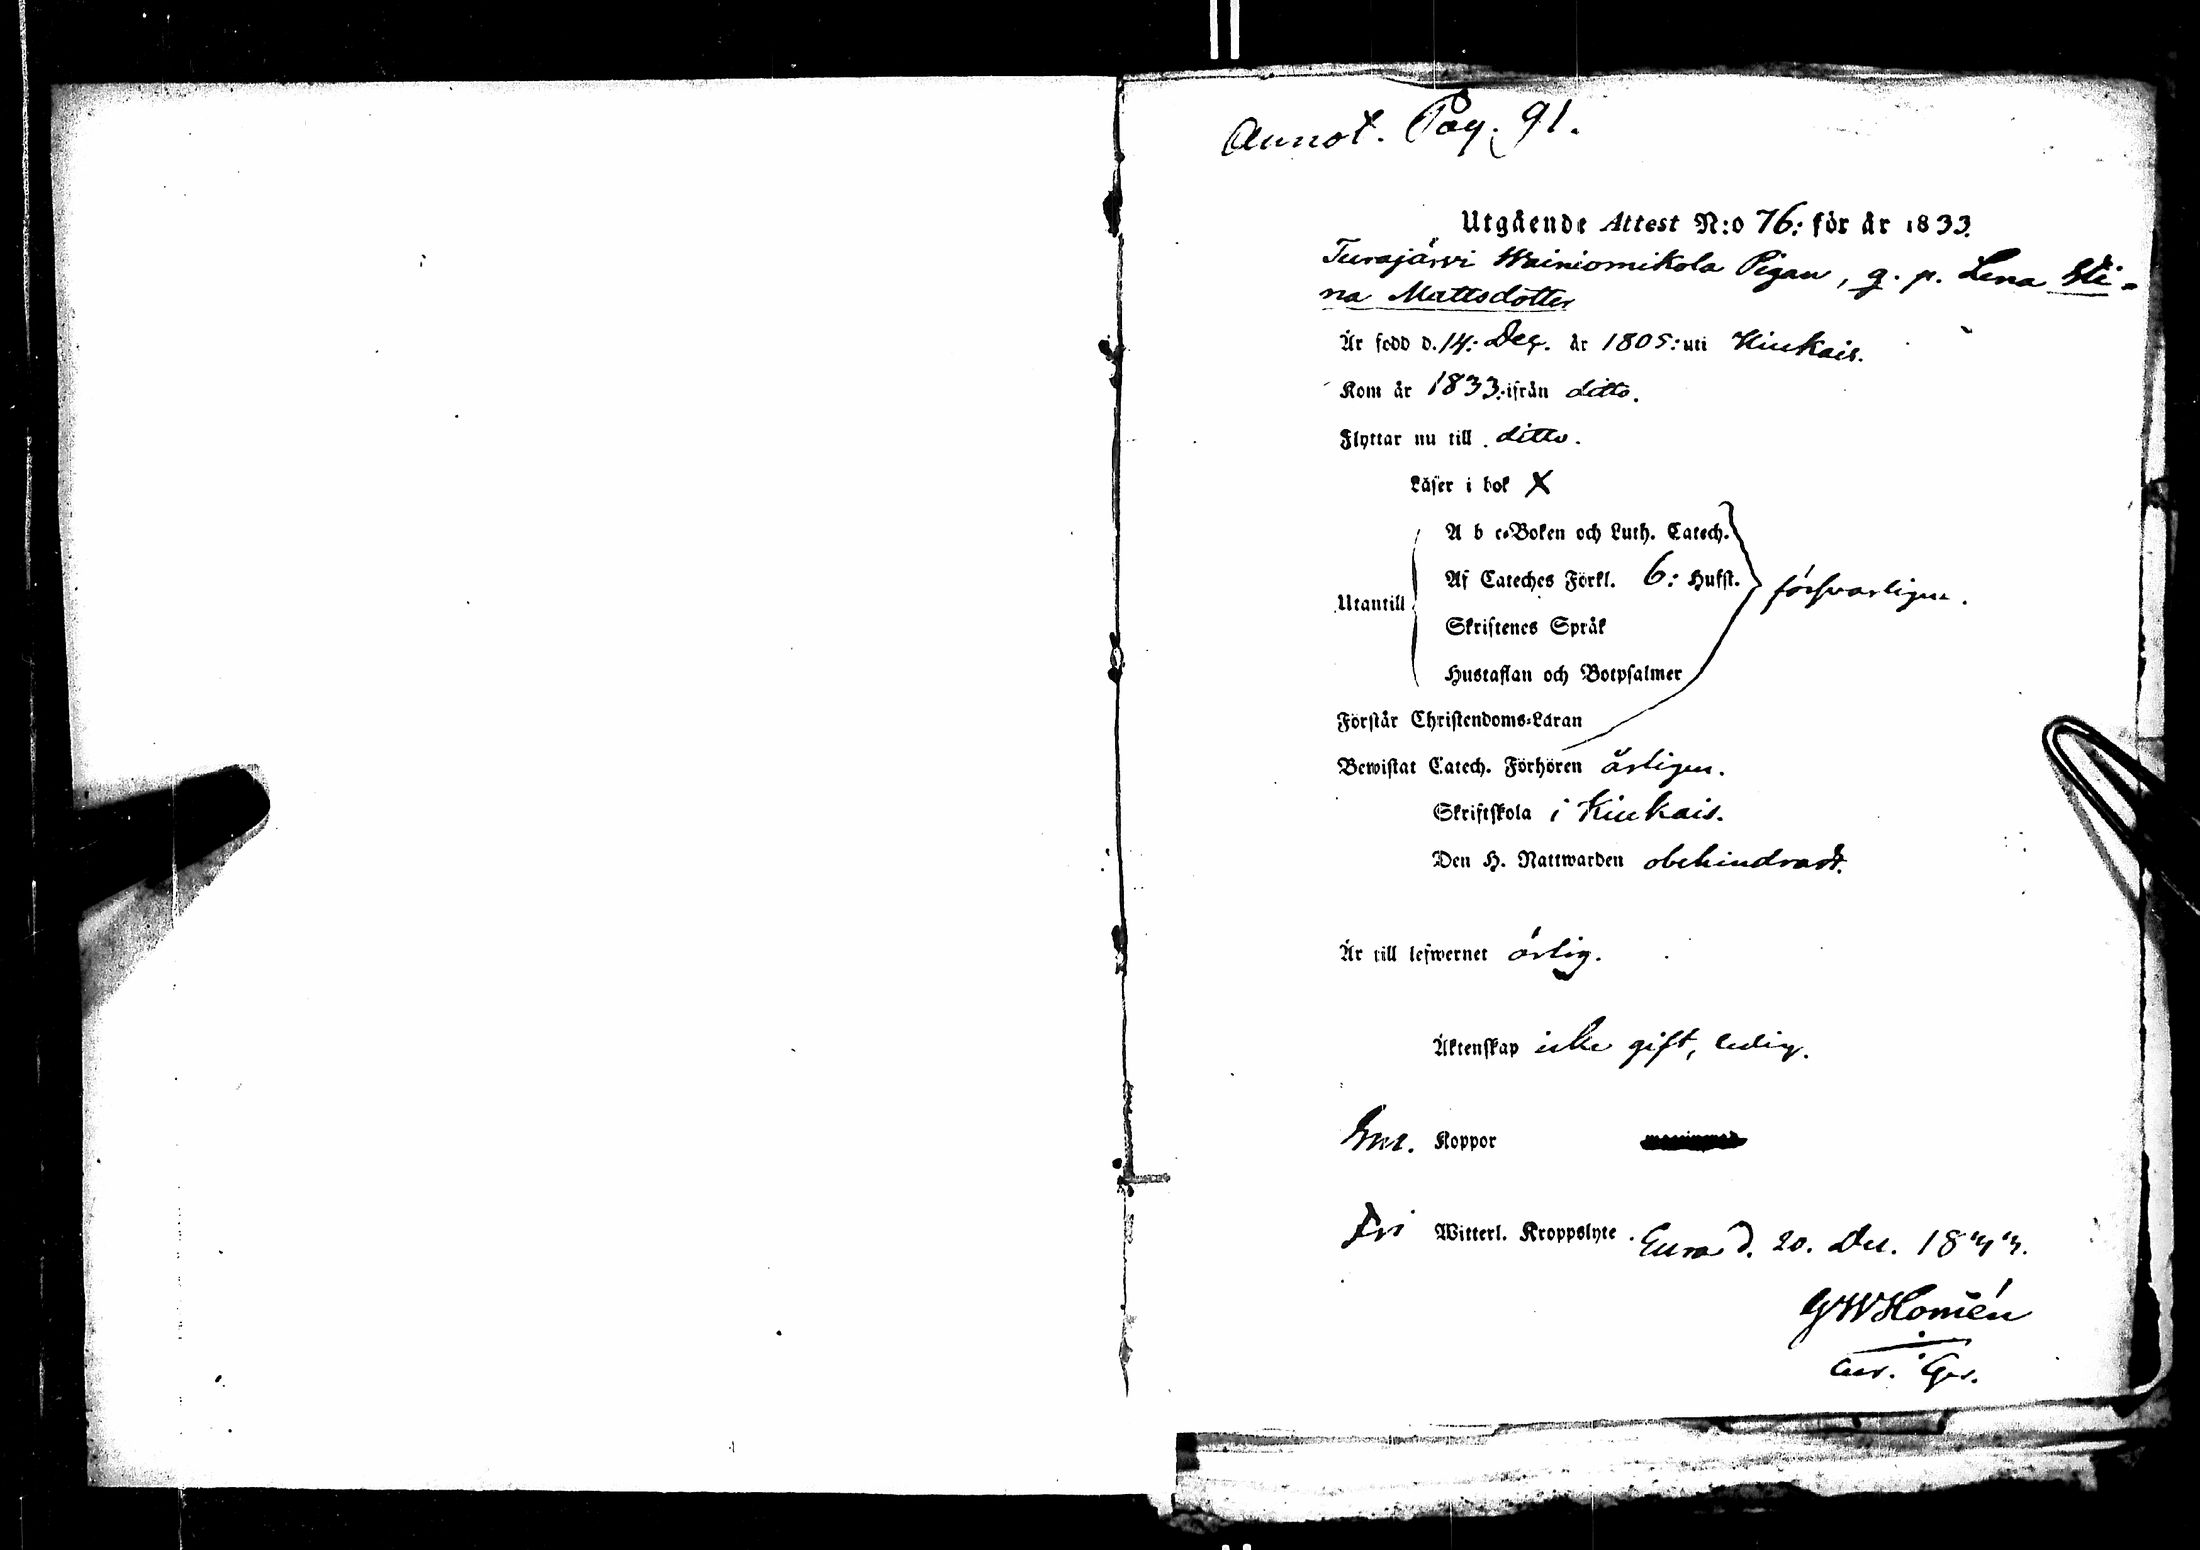 Annot. Pag. 91.
Utgående Attest N:o 76: för år 1833.
Turajärvi Wainiomikola Pigan, g. p. Lena Sti-
na Mattsdotter
Är född d. 14: Dec. år 1805: uti Kiukais.
Kom år 1833: ifrån ditto.
Flyttar nu till ditto.
Läser i bok X
A b c-Boken och Luth. Catech.
Af Cateches Förkl. 6: Hufst. försvarligen.
Utantill
Skriftenes Språk
Hustaflan och Botpsalmer
Förstår Christendoms-Läran
Bewistat Catech. Förhören årligen.
Skriftskola i Kiukais.
Den H. Nattwarden obehindradt.
Är till lefwernet ärlig.
Äktenskap icke gift, ledig.
Koppor
Fri Witterl. Kroppslyte. Eura d. 20. Dec. 1833.
GWHomén